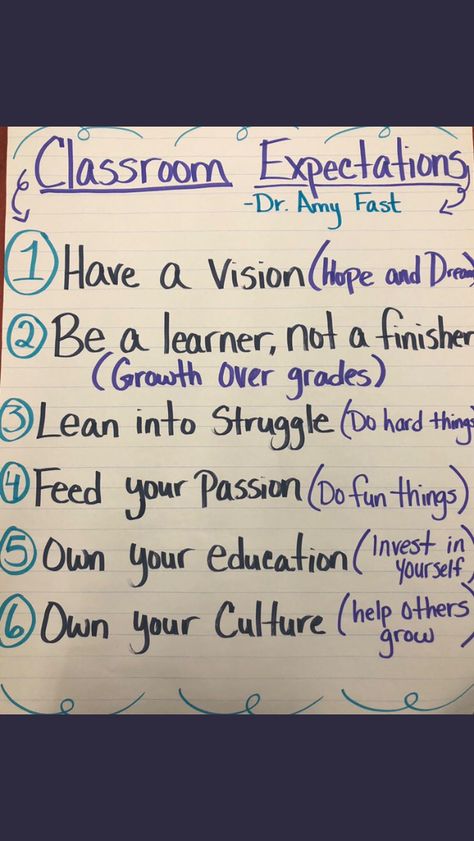 Classroom Expectations
-Dr. Amy Fast
1 Have a Vision (Hope and Dream
2 Be a learner, not a finisher
(Growth over grades)
3 Lean into Struggle (Do hard things
4 Feed your Passion (Do fun things)
5 Own your education (Invest in
yourself)
6 Own your Culture (help others
grow)